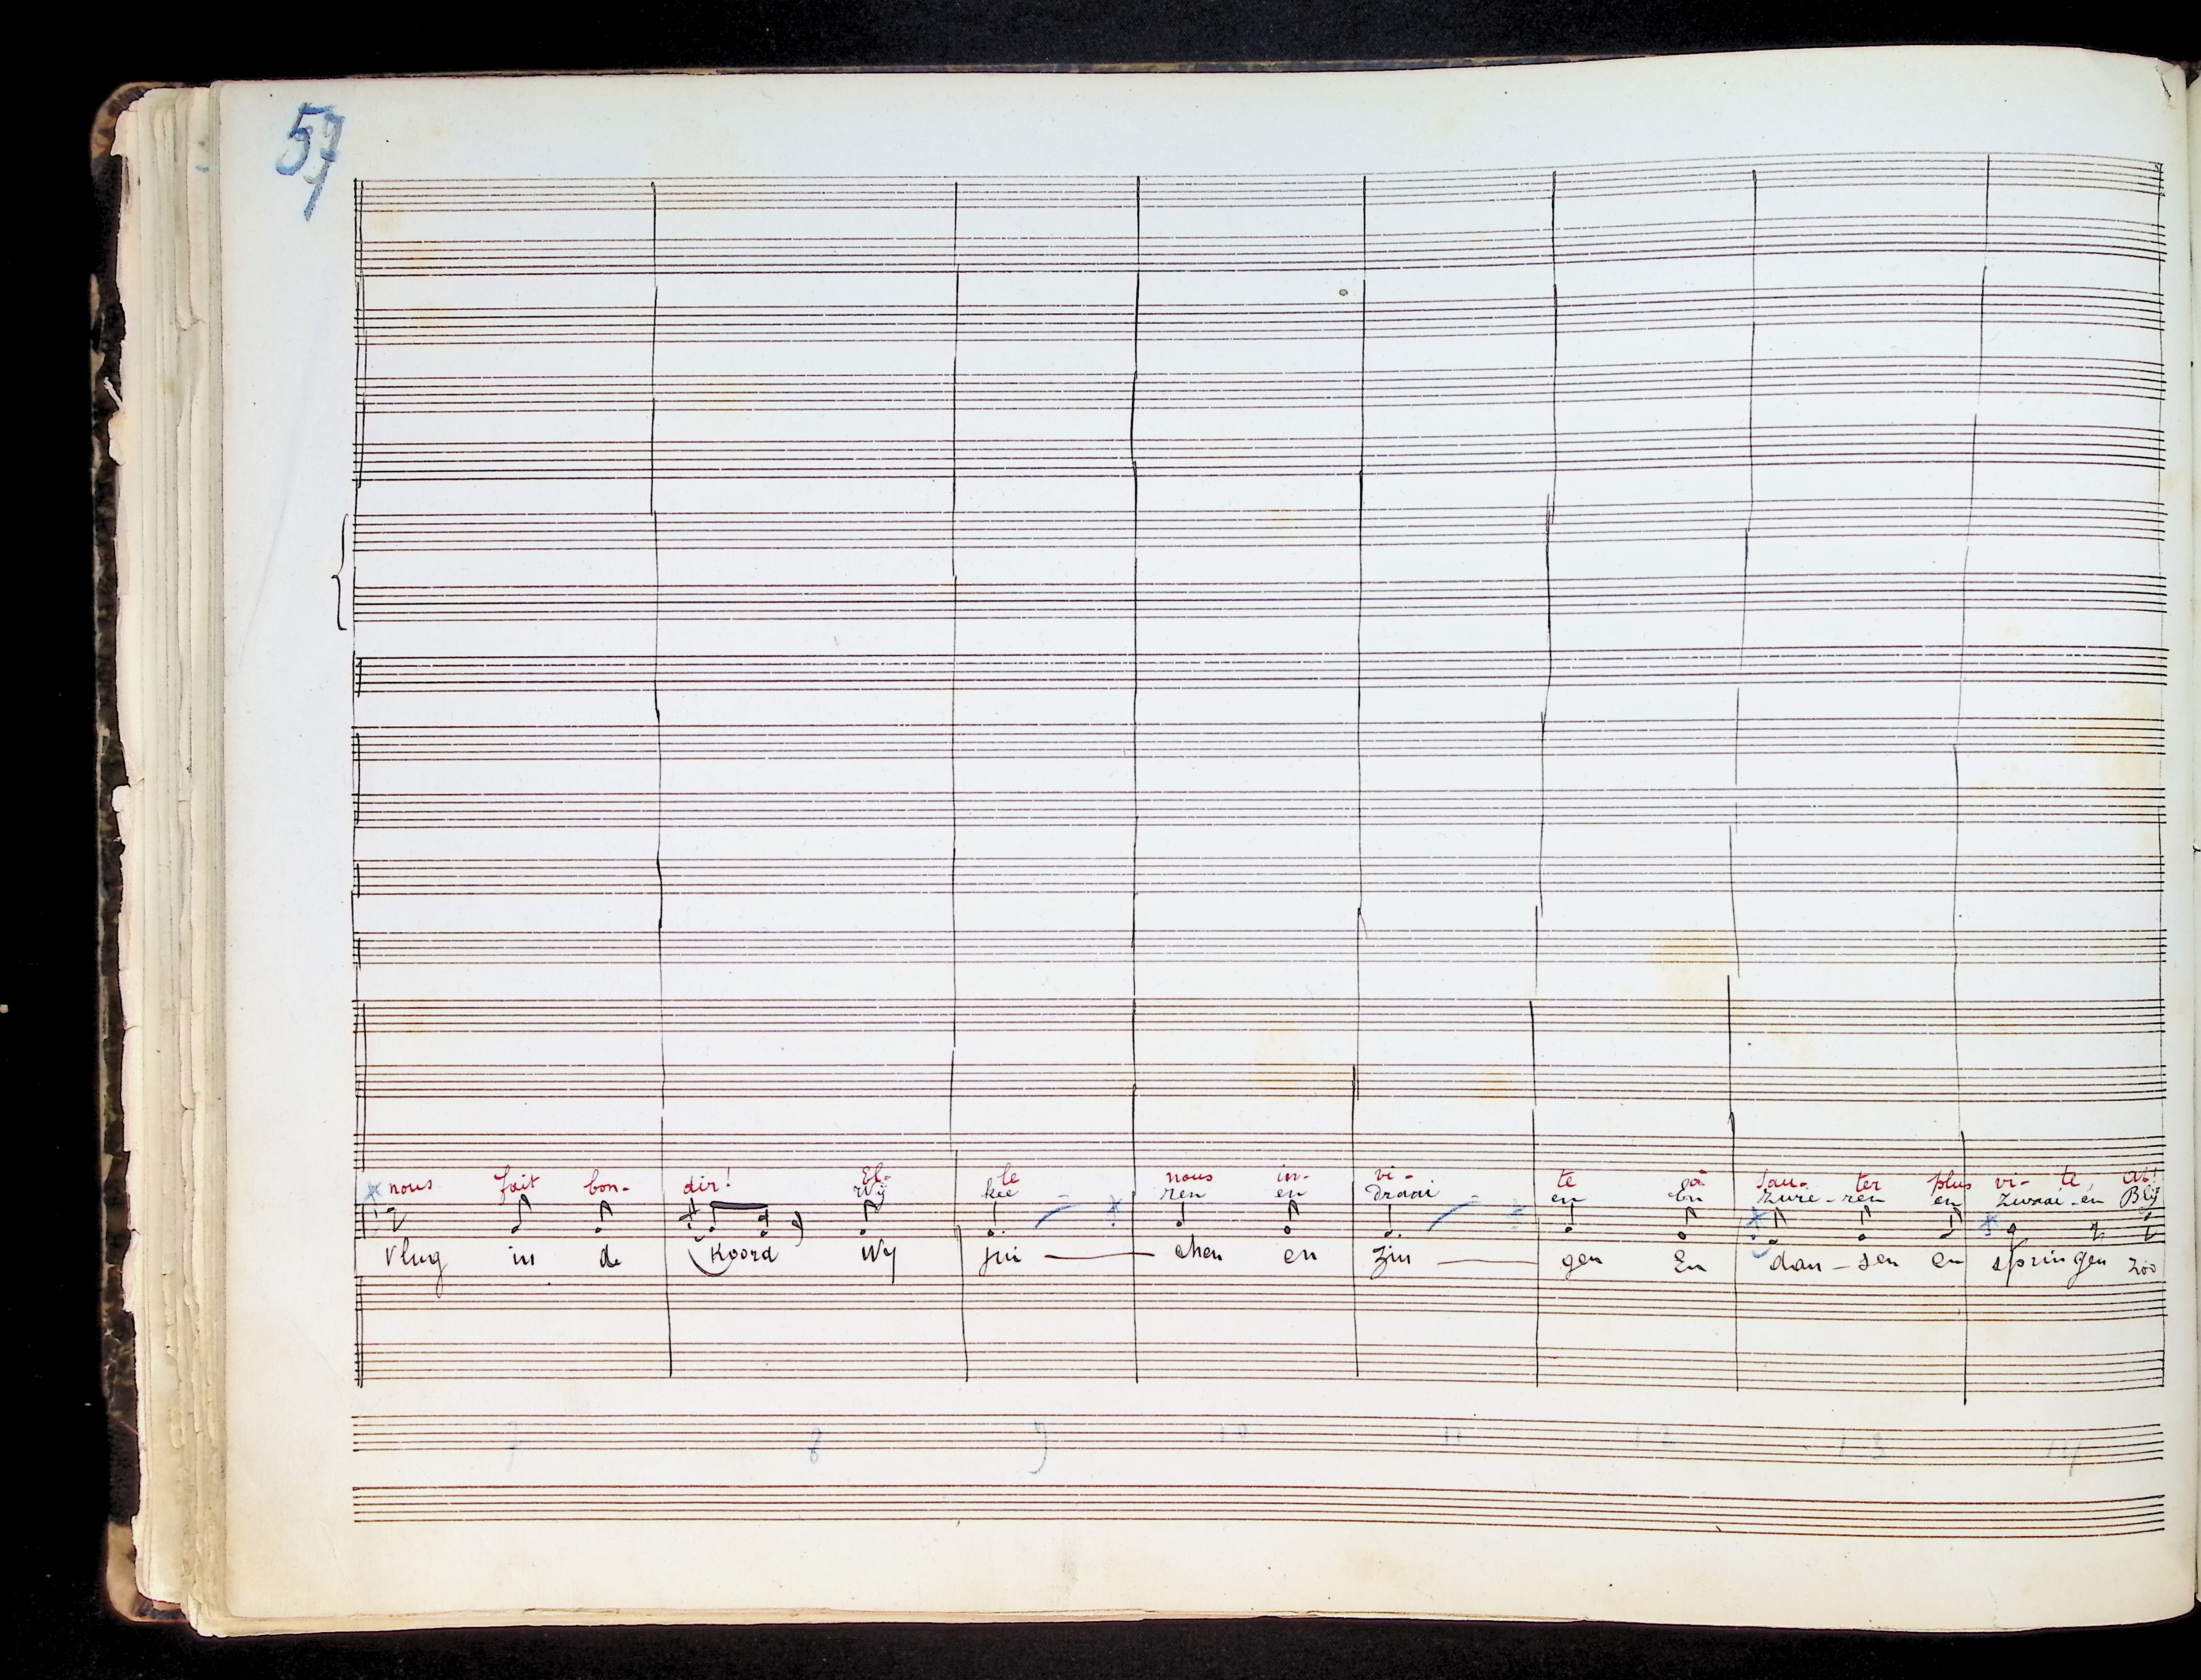 57
nous fait bon- dir! El- le nous in- vi- te à sau- ter plus vi- te, Ah!
Wij kee - ren en draai - en En zwie-ren en zwaai-en Blij
Vlug in de Koord Wij jui chen en zin gen En dan-sen en springen zoo
7 8 9 10 11 12 13 14